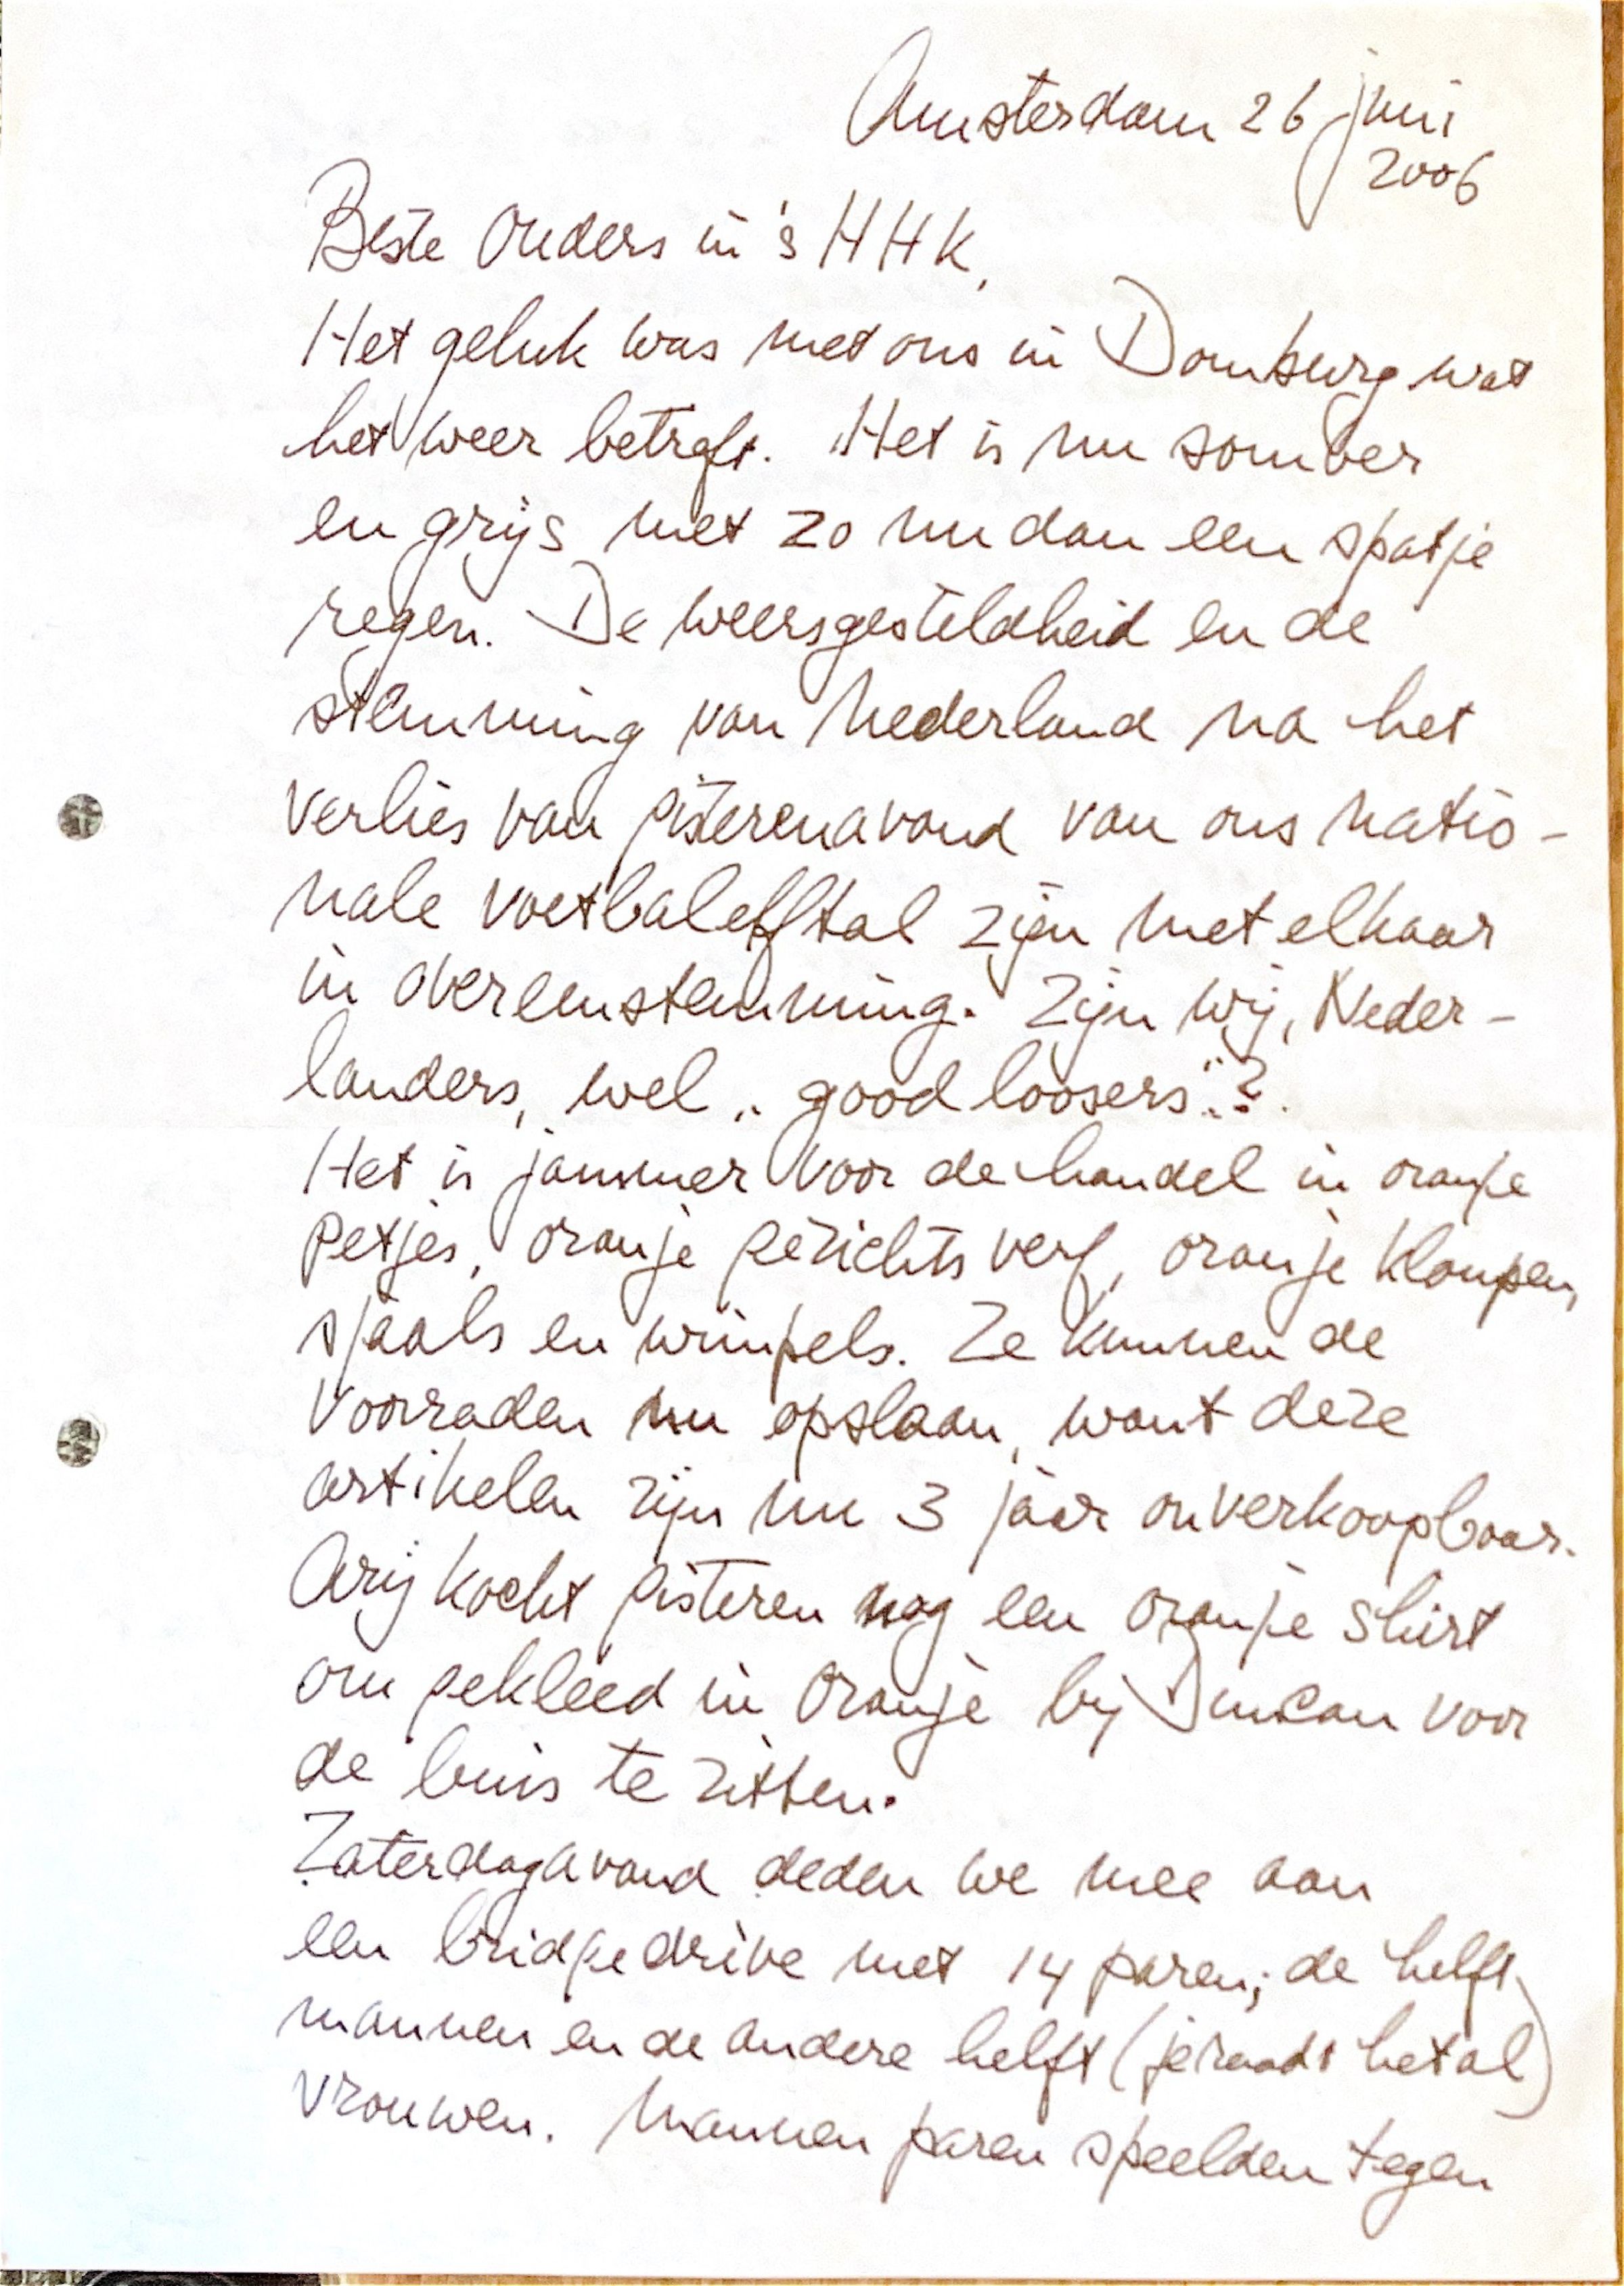 Amsterdam 26 juni
2006
Beste Ouders in 's HHK,
Het geluk was met ons in Domburg wat
het weer betreft. Het is nu somber
en grijs met zo nu dan een spatje
regen. De weersgesteldheid en de
stemming van Nederland na het
verlies van gisterenavond van ons natio-
nale voetbalelftal zijn met elkaar
in overeenstemming. Zijn wij, Neder-
landers, wel „good loosers"?
Het is jammer voor de handel in oranje
petjes, oranje gezichtsverf, oranje klompen,
sjaals en wimpels. Ze kunnen de
voorraden nu opslaan, want deze
artikelen zijn nu 3 jaar onverkoopbaar.
Arij kocht gisteren nog een oranje shirt
om gekleed in oranje bij Duncan voor
de buis te zitten.
Zaterdagavond deden we mee aan
een bridgedrive met 14 paren; de helft
mannen en de andere helft (je raadt het al)
vrouwen. Mannen paren speelden tegen